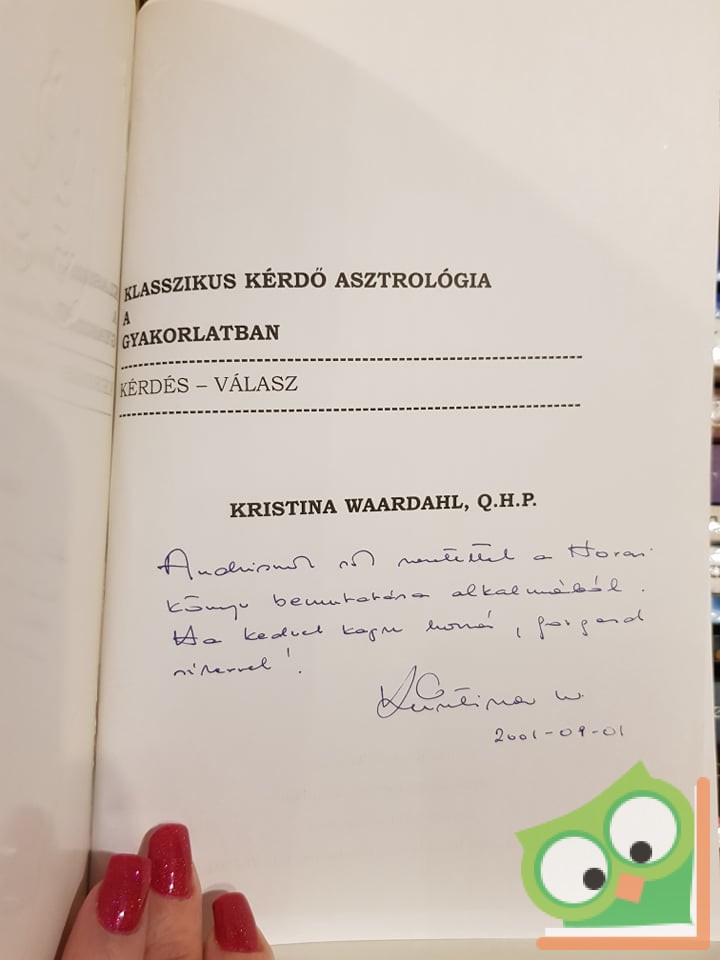 KLASSZIKUS KÉRDŐ ASZTROLÓGIA
A
GYAKORLATBAN
KÉRDÉS – VÁLASZ
KRISTINA WAARDAHL, Q.H.P.
Andrisnak sok szeretettel a Horas
könyv bemutatása alkalmából.
Ha kedvet kapsz hozzá, forgasd
sikerrel!
Kristina W.
2001-09-01